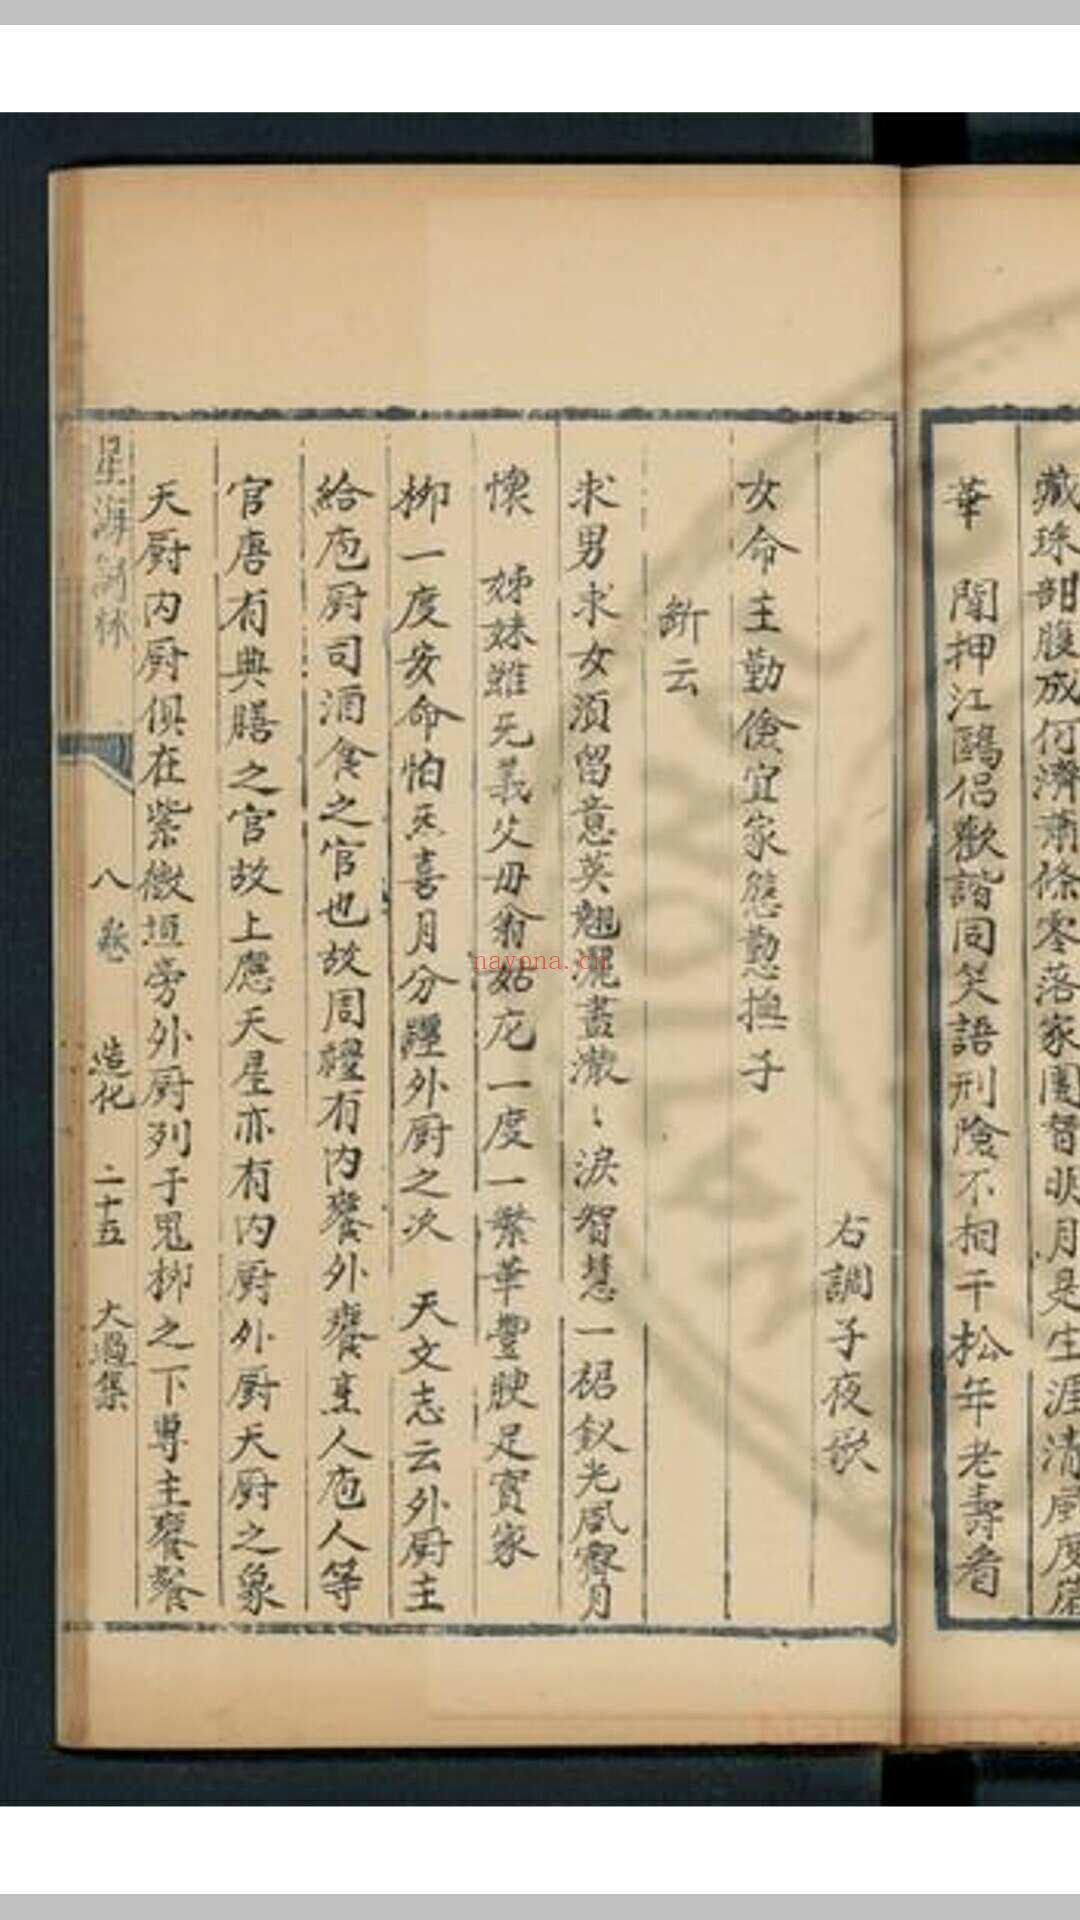 藏珠剖腹成何濟蕭條零落家園暫明月是生涯清風度
華　闈押江鷗侶歡諧同笑語刑陰不相干松年老壽看
右調子夜歌
女命主勤儉宜家慇懃撫子
斷云
求男求女須留意英魁混盡濺〻淚智慧一裙釵光風霽月
懷　姊妹雖无義父毋翁姑庇一度一繁華豐腴足實家
柳一度安命怕天喜月分纏外厨之次　天文志云外厨主
給庖厨司酒食之官也故周禮有内饔外饔烹人庖人等
官唐有典膳之官故上應天星亦有内厨外厨天厨之象
天厨内厨俱在紫微垣旁外厨列于鬼柳之下尊主饔餐
星海詞林　八卷　造化　二十五　大過集
nayona.cn